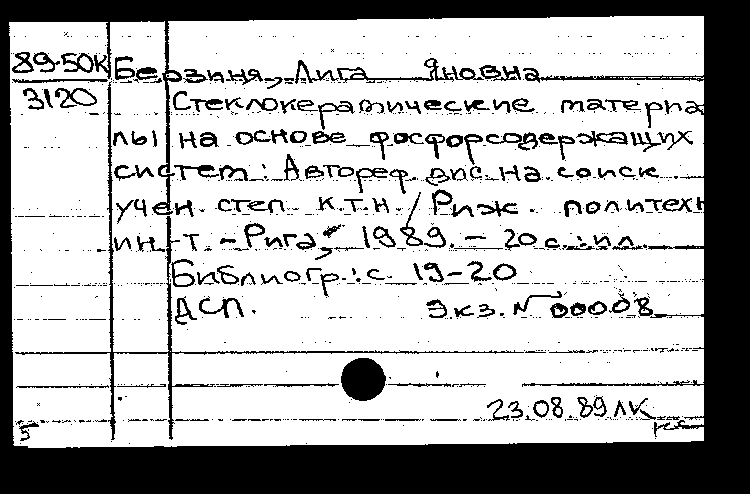 89-50К Берзиня, Лига Яновна
3120 Стеклокерамические материа
лы на основе фосфорсодержащих
систем: Автореф. дис. на соиск.
учен. степ. к.т.н. / Риж. политехн
ин-т. - Рига, 1989. - 20 с.: ил.
Библиогр.: с. 19-20
ДСП. Экз. № 00008
23.08.89 ЛК
5